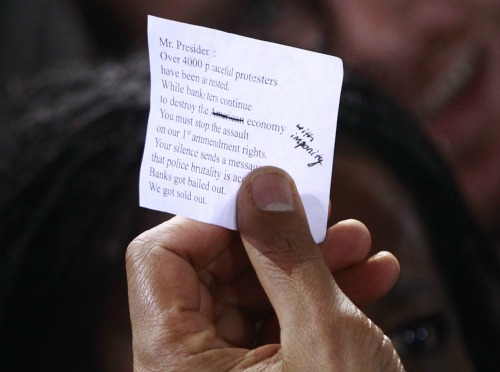 Mr. President:
Over 4000 peaceful protesters
have been arrested.
While banksters continue
to destroy the American economy
with
impunity
You must stop the assault
on our 1st ammendment rights.
Your silence sends a message
that police brutality is
Banks got bailed out.
We got sold out.